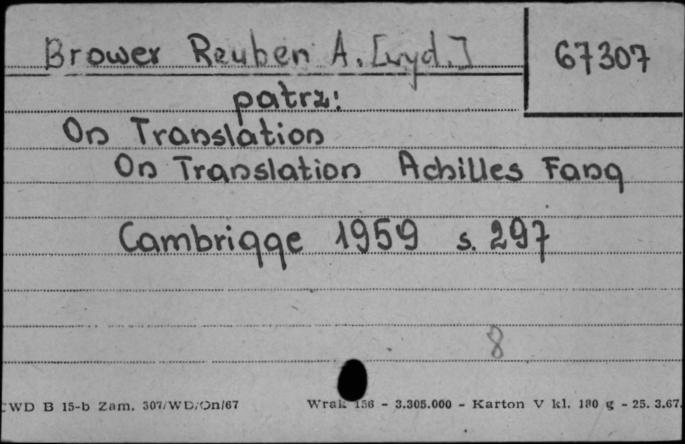 Brower Reuben A. [wyd.] 67307
patrz:
On Translation
On Translation Achilles Fang
Cambrigge 1959 s. 297
8
CWD B 15-b Zam. 307/WD/On/67 Wrak 156 - 3.305.000 - Karton V kl. 180 g - 25. 3.67.